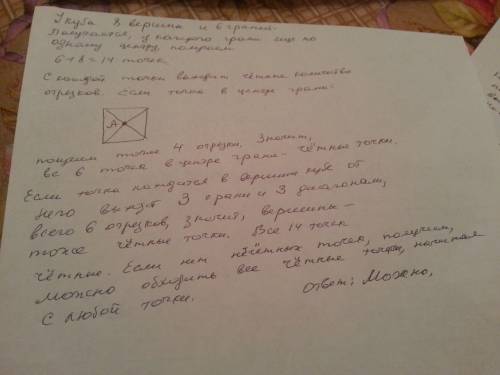 У куба 8 вершин и 6 граней.
Получается, у каждого грани еще по
одному центру, получаем
6+8=14 точек
С каждой точки выходит чётное количество
отрезков. Если точка в центре грани:
A
получаем только 4 отрезки. Значит,
все 6 точек в центре грани - чётные точки.
Если точка находится в вершине куба от
него выходят 3 грани и 3 диагонали,
всего 6 отрезков, значит, вершины -
тоже чётные точки. Все 14 точек
чётные. Если нет нечётных точек, получаем,
можно обходить все чётные точки, начиная
с любой точки.
Ответ: Можно.